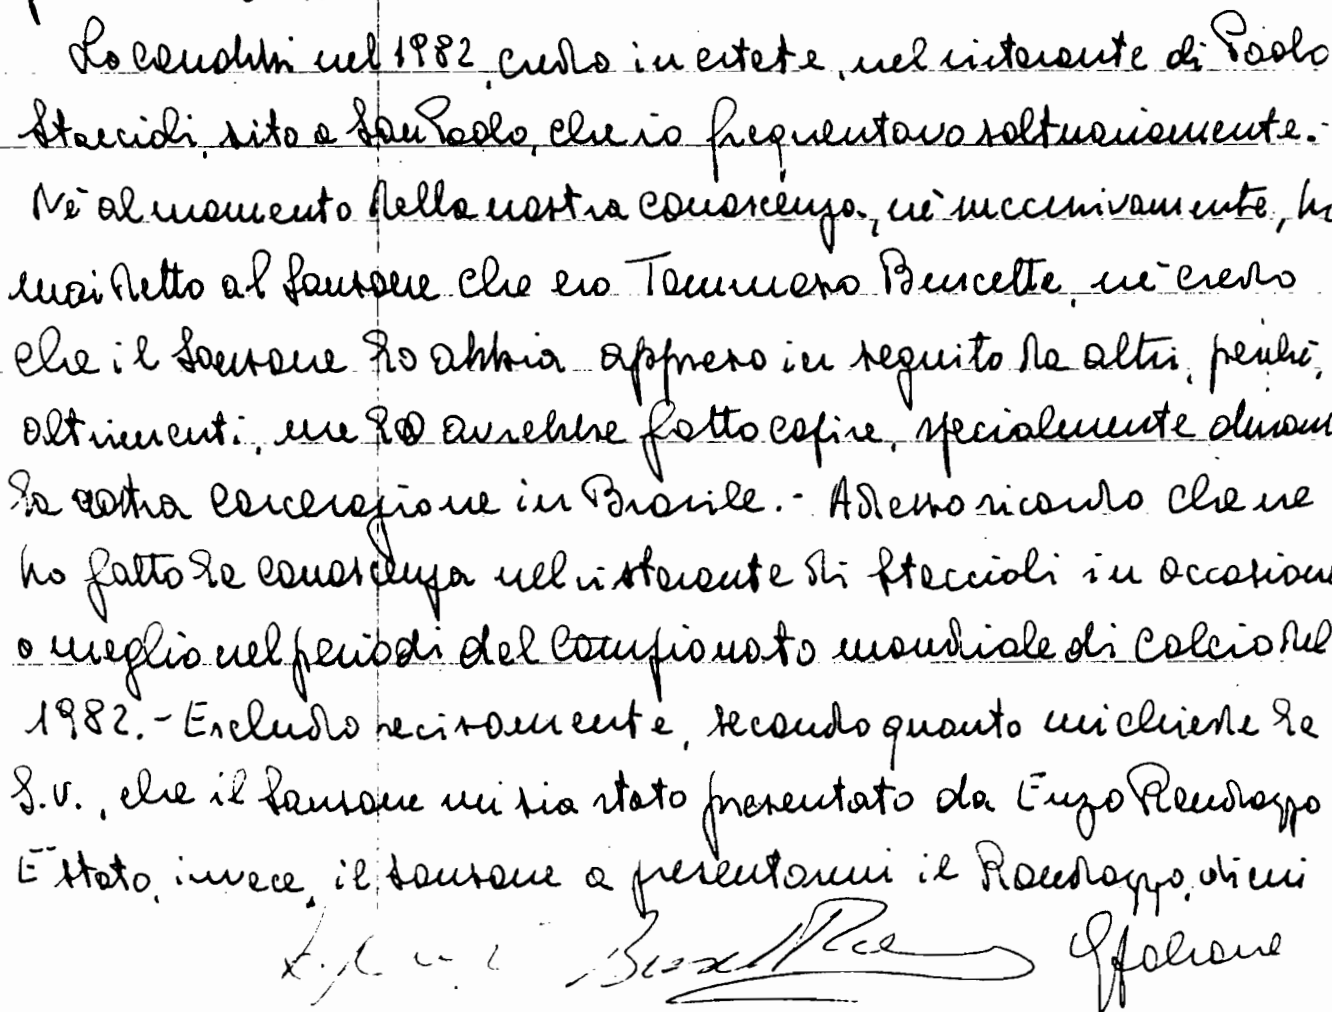 Lo conobbi nel 1982, credo in estate, nel ristorante di Paolo
Staccioli, sito a San Paolo, che io frequentavo saltuariamente.-
Nè al momento della nostra conoscenza, nè successivamente, ho
mai detto al Sansone che ero Tommaso Buscetta, nè credo
che il Sansone lo abbia appreso in seguito da altri, perchè,
altrimenti, me lo avrebbe fatto capire, specialmente duran
la nostra carcerazione in Brasile.- Adesso ricordo che ne
ho fatto la conoscenza nel ristorante di Staccioli in occasion
o meglio nel periodi del Campionato mondiale di calcio del
1982.- Escludo recisamente, secondo quanto mi chiede la
S.V., che il Sansone mi sia stato presentato da Enzo Randazzo
E' stato, invece, il Sansone a presentarmi il Randazzo, di cui
GFalcone